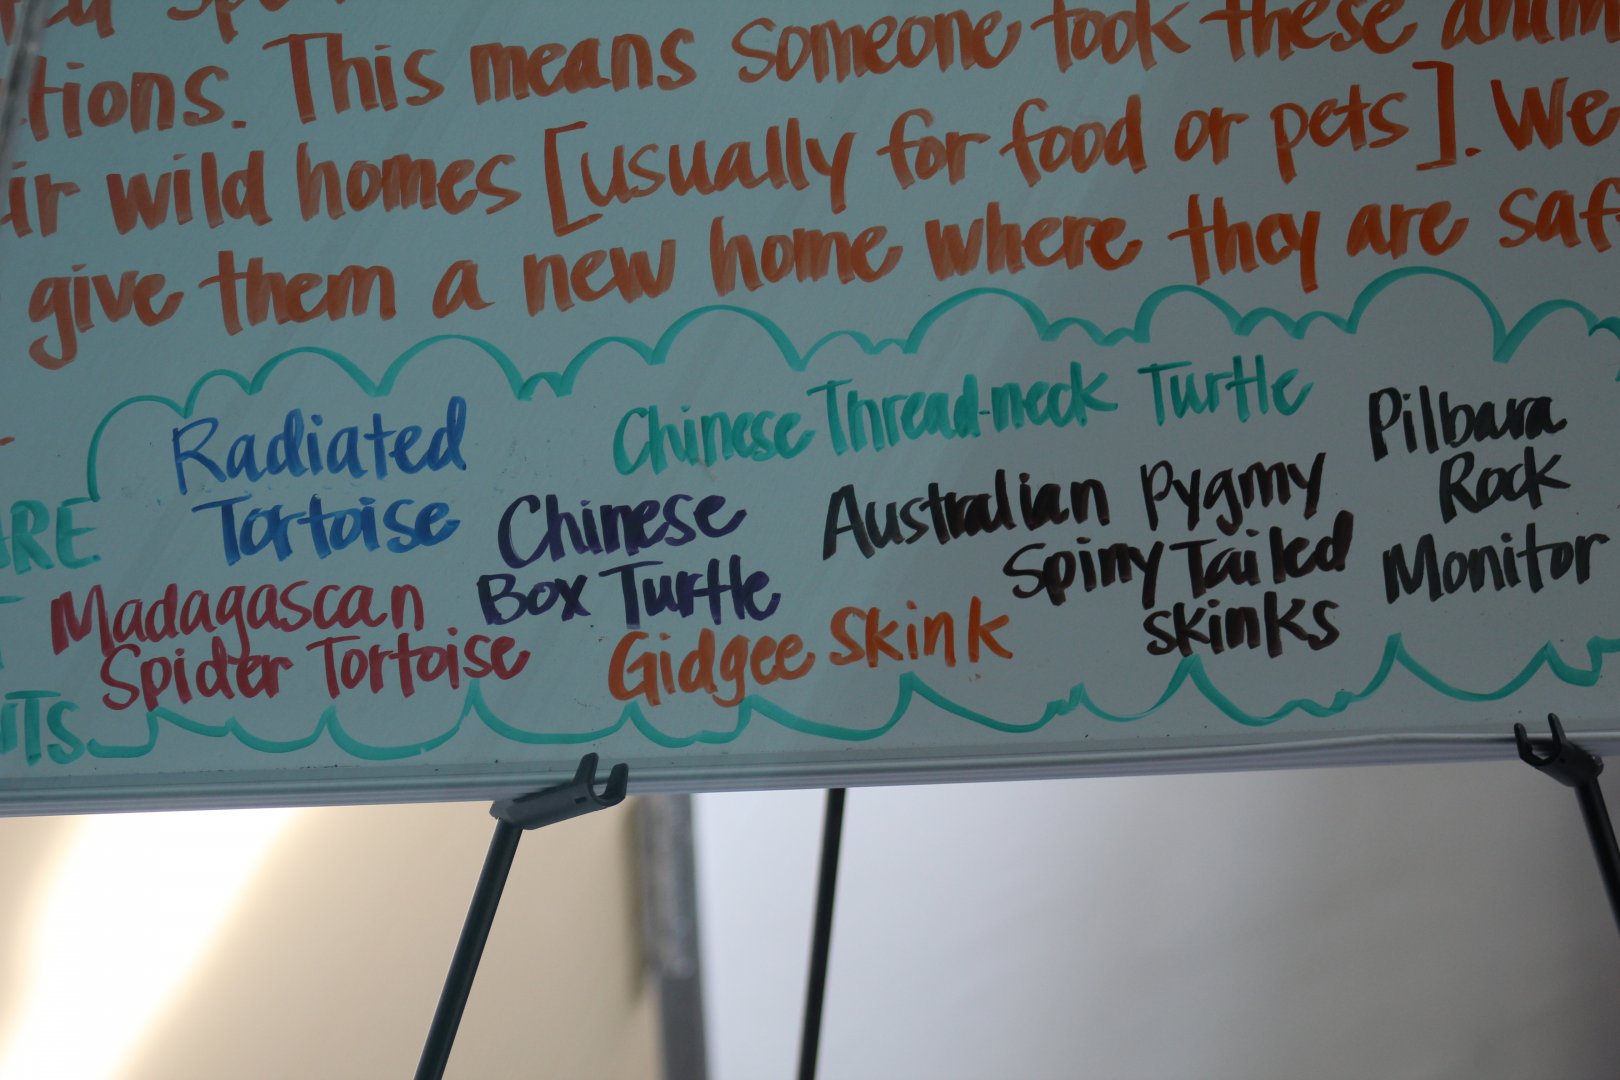 tions. This means someone took these
wild homes [usually for food or pets]. We
give them a new home where they are
Radiated
Tortoise
Chinese Thread-neck Turtle
Pilbara
Rock
Monitor
Chinese
Box Turtle
Australian Pygmy
Spiny Tailed
skinks
Madagascan
Spider Tortoise
Gidgee Skink